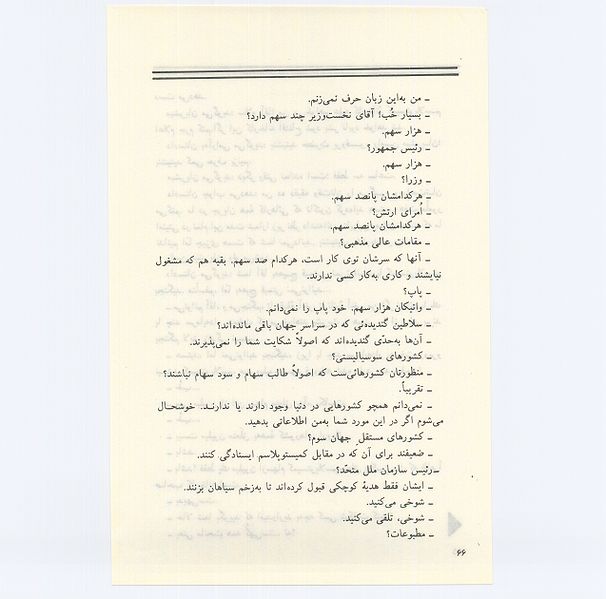 ـ من به‌این زبان حرف نمی‌زنم.
ـ بسیار خُب! آقای نخست‌وزیر چند سهم دارد؟
ـ هزار سهم.
ـ رئیس جمهور؟
ـ هزار سهم.
ـ وزرا؟
ـ هرکدامشان پانصد سهم.
ـ اُمرای ارتش؟
ـ هرکدامشان پانصد سهم.
ـ مقامات عالی مذهبی؟
ـ آنها که سرشان توی کار است، هرکدام صد سهم. بقیه هم که مشغول
نیایشند و کاری به‌کار کسی ندارند.
ـ پاپ؟
ـ واتیکان هزار سهم. خود پاپ را نمی‌دانم.
ـ سلاطین گندیده‌ئی که در سراسر جهان باقی مانده‌اند؟
ـ آن‌ها به‌حدّی گندیده‌اند که اصولاً شکایت شما را نمی‌پذیرند.
ـ کشورهای سوسیالیستی؟
ـ منظورتان کشورهائی‌ست که اصولاً طالب سهام و سود سهام نباشند؟
ـ تقریباً.
ـ نمی‌دانم همچو کشورهایی در دنیا وجود دارند یا ندارنـد. خوشحـال
می‌شوم اگر در این مورد شما به‌من اطلاعاتی بدهید.
ـ کشورهای مستقل جهان سوم؟
ـ ضعیفند برای آن که در مقابل کمیستوپلاسم ایستادگی کنند.
ـ رئیس سازمان ملل متحّد؟
ـ ایشان فقط هدیهٔ کوچکی قبول کرده‌اند تا به‌زخم سیاهان بزنند.
ـ شوخی می‌کنید.
ـ شوخی، تلقی می‌کنید.
ـ مطبوعات؟
۶۶